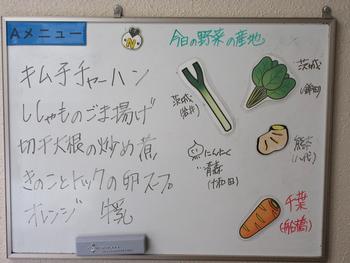 Aメニュー
今日の野菜の産地
キムチチャーハン
ししゃものごま揚げ
切干大根の炒め煮
きのことトックの卵スープ
オレンジ 牛乳
茨城
(岩井)
茨城
(鉾田)
にんにく
青森
(十和田)
熊本
(八代)
千葉
(船橋)